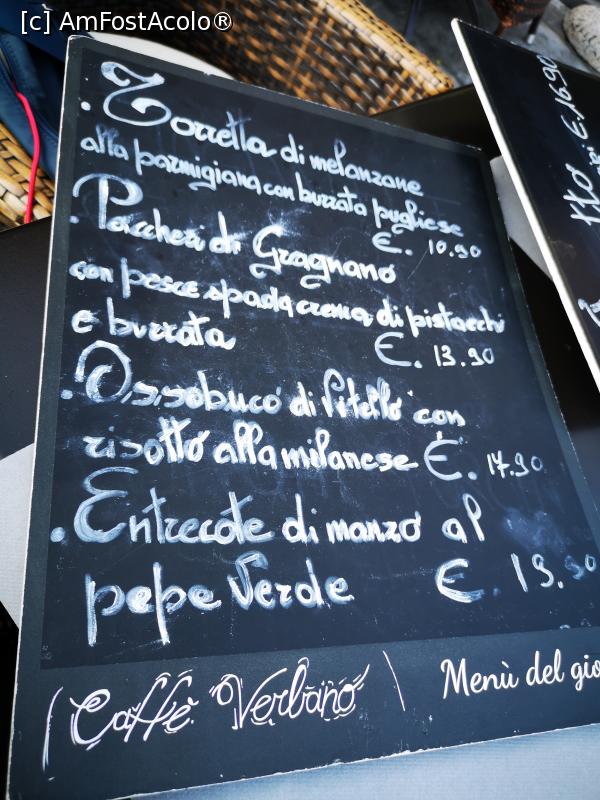 [c] AmFostAcolo®
. Torretta di melanzane
alla parmigiana con burrata pugliese
€. 10.90
. Paccheri di Gragnano
con pesce spada crema di pistacchi
e burrata €. 13.90
. Ossobuco di Vitello con
risotto alla milanese €. 17.90
. Entrecote di manzo al
pepe Verde €. 19.90
Caffè Verbano
Menù del gio
€.16.90
tto